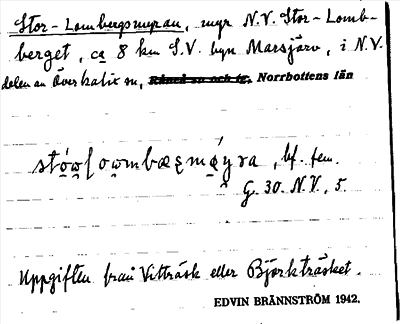 Stor-Lombergsmyran, myr N.V. Stor-Lomb-
berget, ca 8 km S.V. byn Marsjärv, i N.V.
delen av Överkalix sn, Råneå sn och tg. Norrbottens län
bf. fem.
G. 30. N.V., 5.
Uppgiften från Vitträsk eller Björkträsket.
EDVIN BRÄNNSTRÖM 1942.